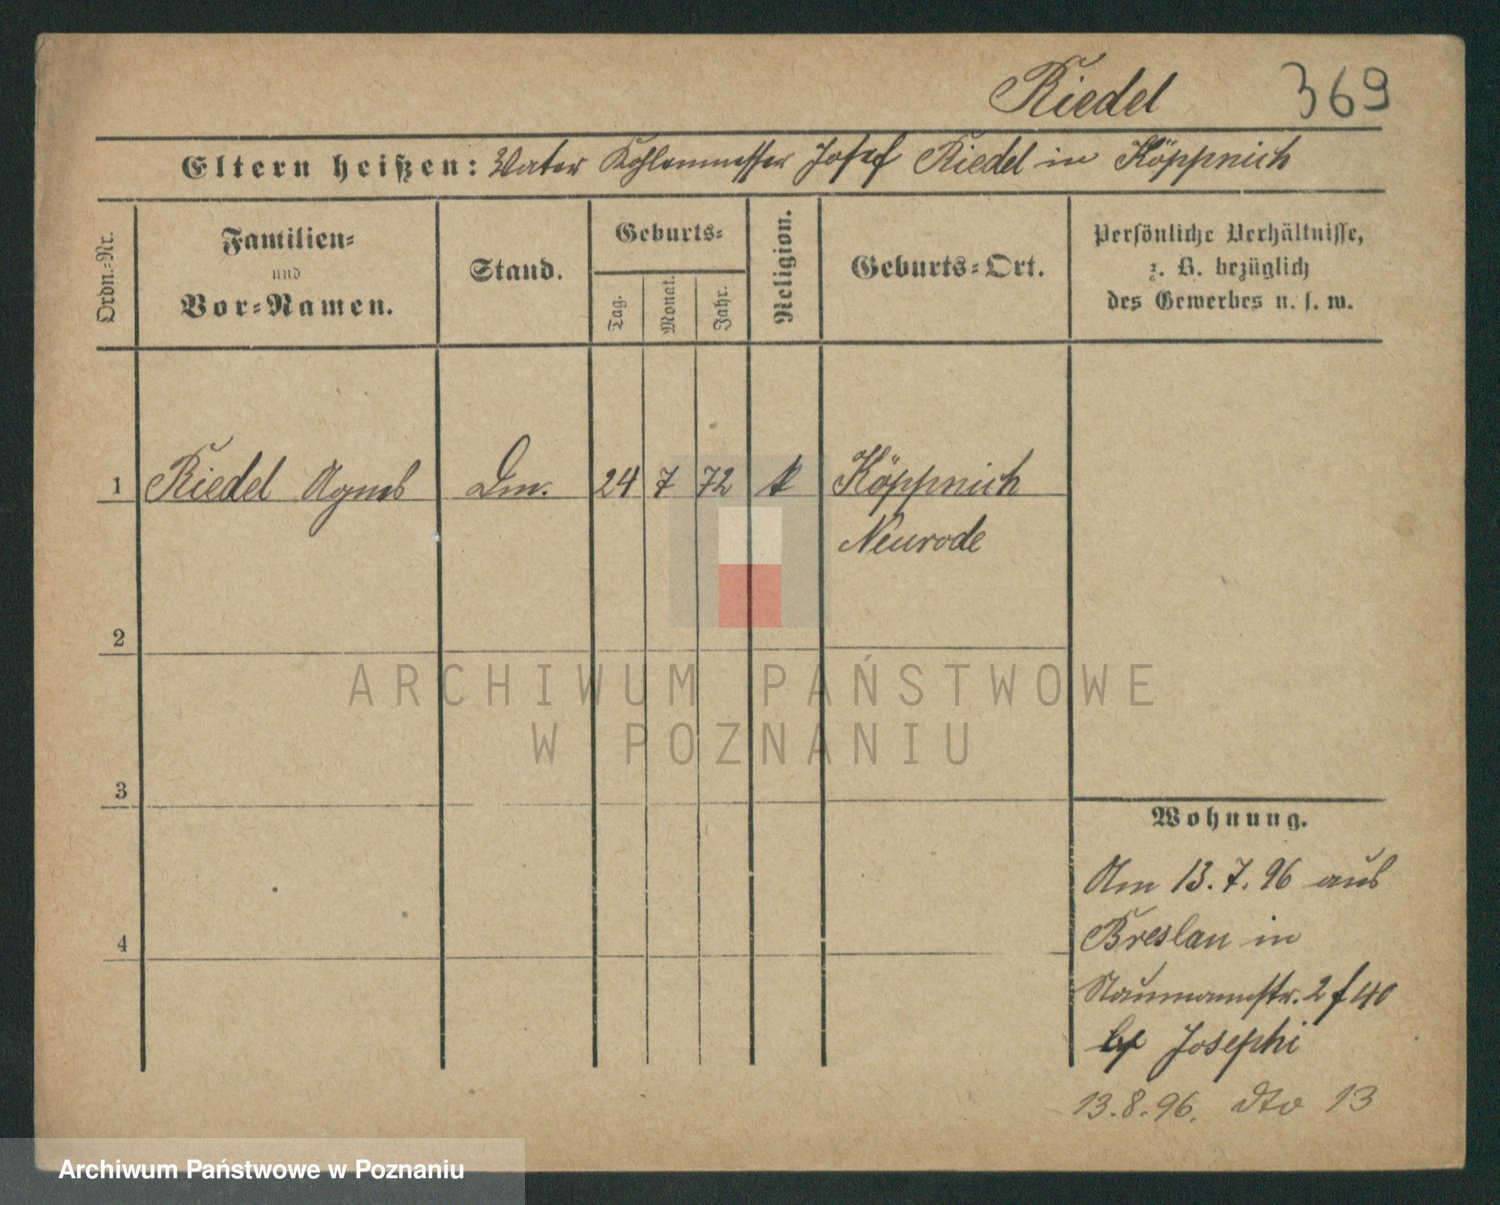 Riedel 369
Eltern heißen: Vater Kohlenmesser Josef Riedel in Köppnich
Ordn.-Nr.
Familien-
und
Vor-Namen.
Stand.
Geburts-
Tag.
Monat.
Jahr.
Religion.
Geburts-Ort.
Persönliche Verhältnisse,
z. B. bezüglich
des Gewerbes u. s. w.
1 Riedel Agnes Dm. 24 7 72 k Köppnich
Neurode
2
3
4
ARCHIWUM PAŃSTWOWE
W POZNANIU
Wohnung.
Am 13.7.96 aus
Breslau in
Naumannstr. 2 f 40
bei Josephi
13.8.96. dto 13
Archiwum Państwowe w Poznaniu